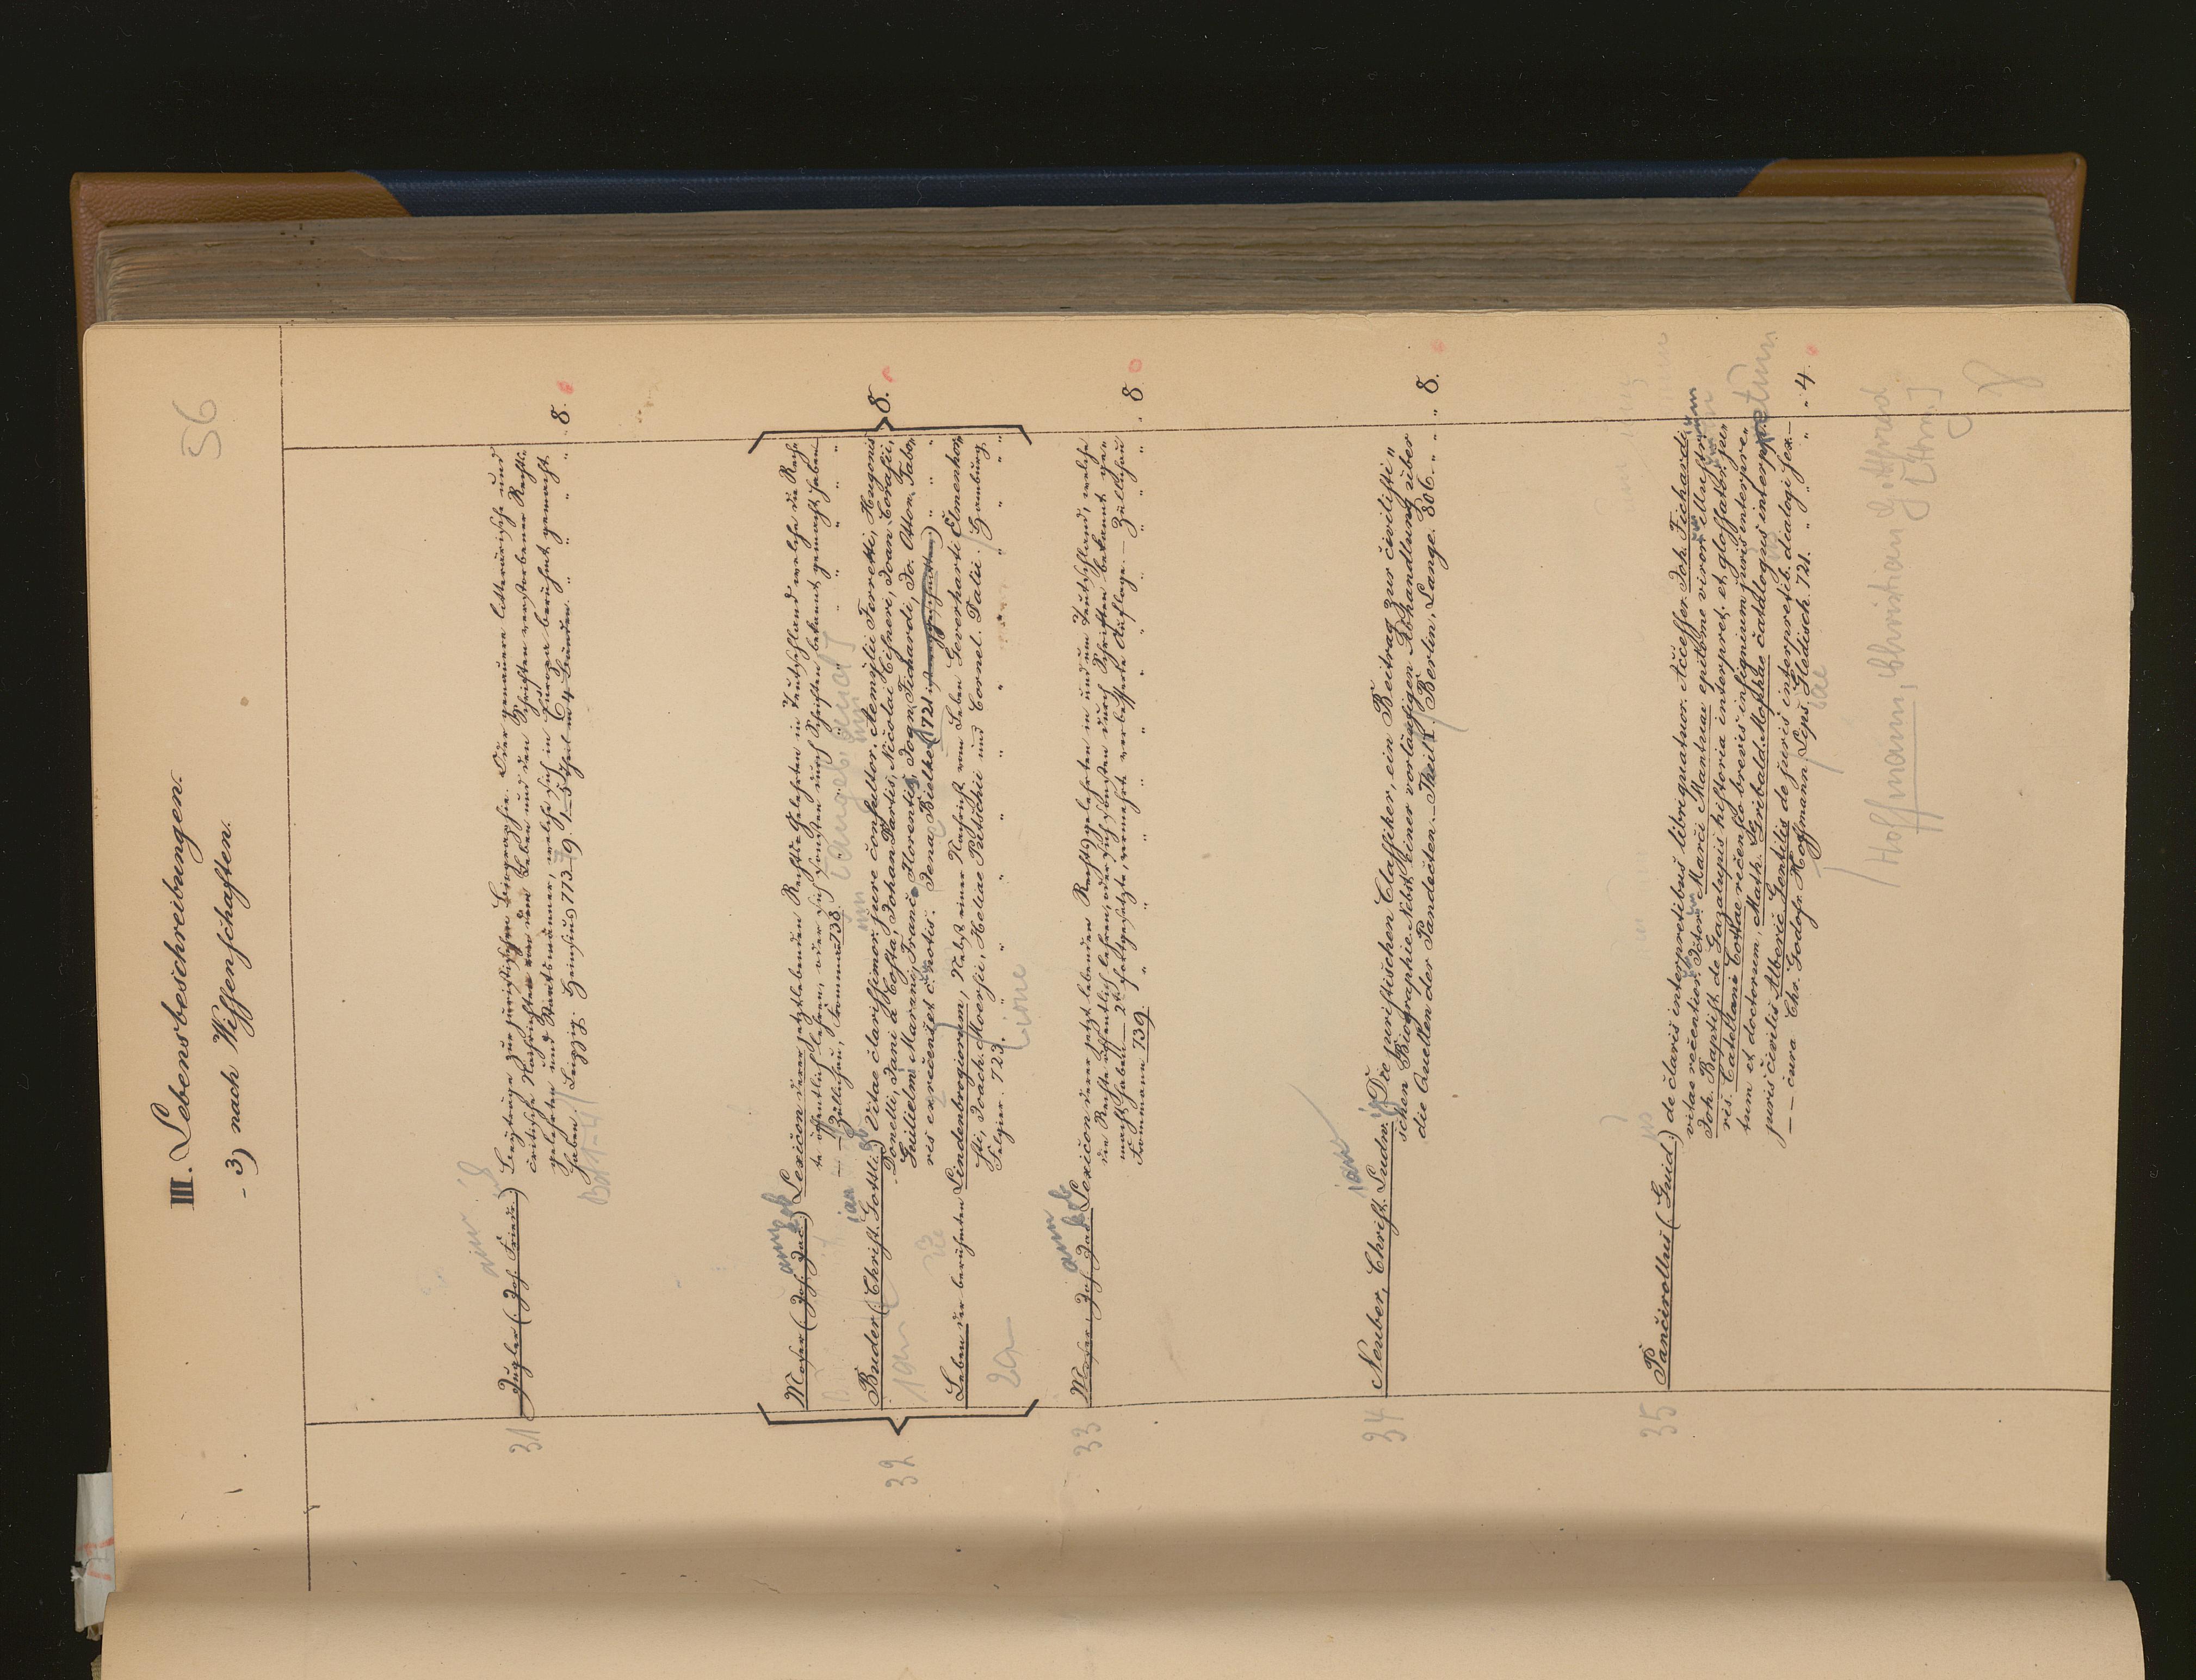 56
III. Lebensbeschreibungen.
- 3) nach Wissenschaften.
31
Jugler (Joh. Friedr.) Beyträge zur juristischen Biographie. Oder genauere litterärische und
critische Nachrichten von dem Leben und den Schriften verstorbener Rechts-
gelehrten und Staatsmänner, welche sich in Europa berühmt gemacht
haben. Leipzig. Heinsius 773_9. 1_5 Theil in 4 Bänden. " " " 8.
Bd 1-4
32
Moser (Joh. Jac.) Lexicon derer jetztlebenden Rechts-Gelehrten in Teutschland welche die Rech-
te öffentlich lehren, oder sich sonsten durch Schriften bekannt gemacht haben
— Züllichau, Frommann 738. " " " "
Buder (Christ. Gottli.) Vitae clarissimor. jure consultor. Aemylii Ferretti, Hugonis
Donelli, Jani a Costa, Johan Partis, Nicolai Cisneri, Joan Corasii,
Guilielmi Marani, Franc. Florentis, Joan. Fichardi, Jo. Otton. Tabo-
ris ex recens. et c. notis. Jena, Bielke (1721 " " "
Leben der berühmten Lindenbrogiorum, Nebst einer Nachricht vom Leben Geverharti Elmenhor-
sti, Joach. Moersii, Heliae Putschii und Cornel. Dalii. Hamburg
Felginer. 723. " " " " " " " " " 8.
33
Moser, Joh. Jac. Lexicon derer jetzt lebenden Rechtsgelehrten in und um Teutschland, welche
die Rechte öffentlich lehren, oder sich sonsten durch Schriften bekannt ge-
macht haben — 2te fortgesetzte, vermehrt verbesserte Auflage. — Züllichau
Frommann 739. " " " " " " " 8
34
Neuber, Christ. Ludw. Die juristischen Classiker, ein Beitrag zur civilisti-
schen Biographie. Nebst einer vorläufigen Abhandlung über
die Quellen der Pandecten. — Theil 1. Berlin, Lange. 806. " " 8.
35
Pancirollus (Guid.) de claris interpretibus libri quatuor. Accesser. Joh. Fichardi
vitae recentior. Jctor. Marci Mantuae epitome viror. illustr.
Joh. Baptist. de Gazalupis historia interpret. et glossator. ju-
ris. Catellani Cottae recensio brevis insignium juris interpre-
tum et doctorum, Math. Gribald. Mophae catalogus interpretum
juris civilis Alberici Gentilis de juris interpretib. dialogi sex. —
— — cura Chr. Godofr. Hoffmann. Lips. Gleditsch. 721. " " " 4.
Hoffmann, Christian Gottfried
[Hrsg.]
8